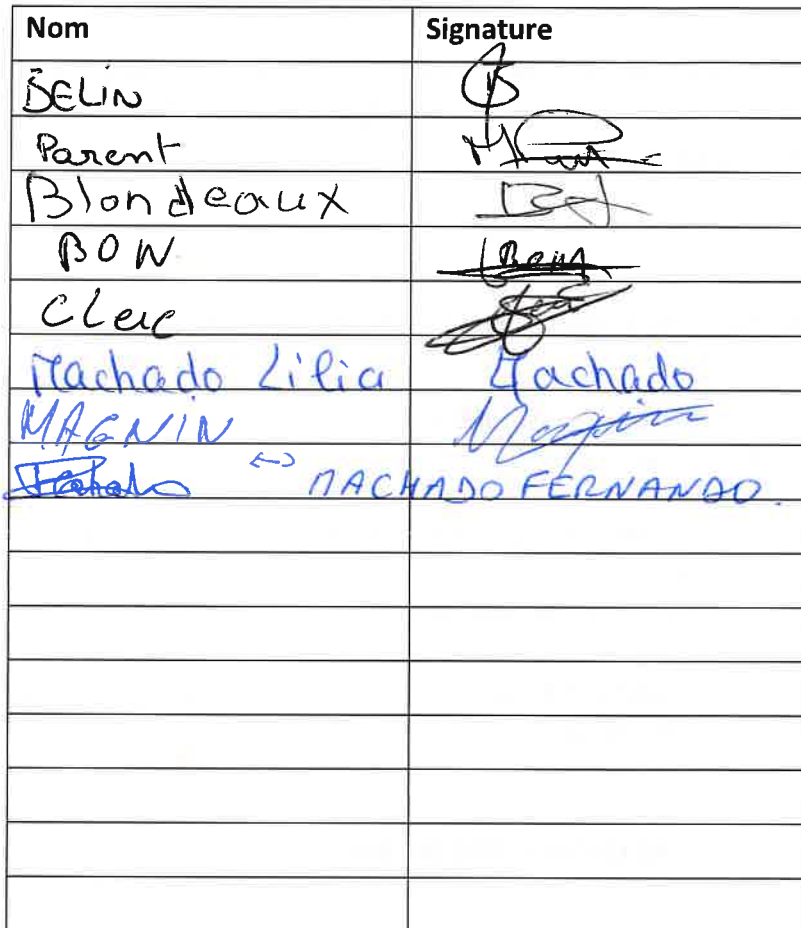 Nom Signature
BELIN
Parent
Blondeaux
BOW
Clerc
Machado Lilia Machado
MAGNIN Magnin
↔ MACHADO FERNANDO.